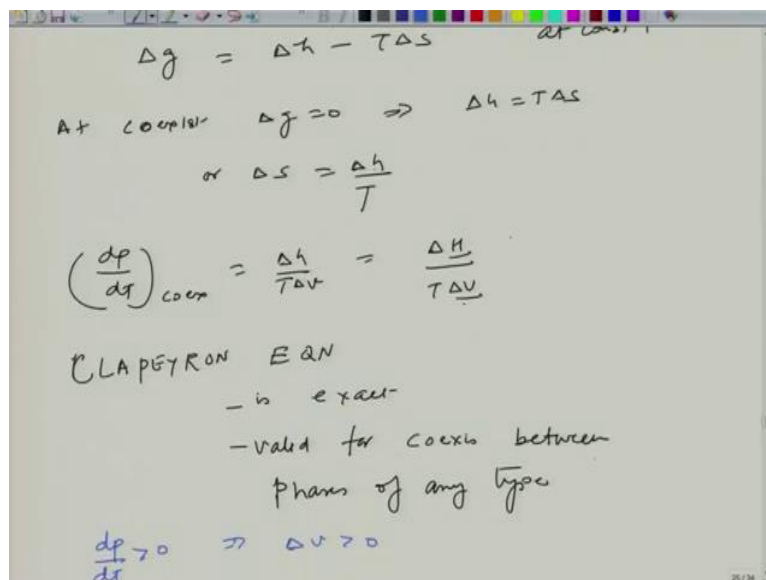 Δg = Δh - TΔS at const T
At coexis- Δg = 0 ⇒ Δh = TΔS
or ΔS = Δh/T
(dp/dT)coex = Δh/TΔv = ΔH/TΔV
CLAPEYRON EQN
- is exact
- valid for coexis between
phases of any type
dp/dT > 0 ⇒ Δv > 0
25/34